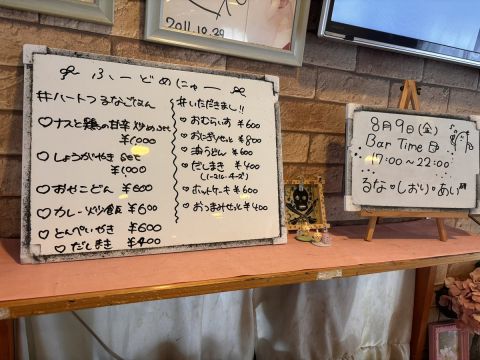 2011.10.29
ふーどめにゅー
#ハートつるなごはん
♡ナスと鶏の甘辛炒めset
¥1000
♡しょうがやきset
¥1,000
♡おせこどん ¥600
♡カレー炒飯 ¥600
♡とんぺいやき ¥600
♡だしまき ¥400
#いただきまし!!
♡おむらいす ¥600
♡おにぎりせっと ¥800
♡油うどん ¥600
♡だしまき ¥400
♡ホットケーキ ¥600
♡おつまみせっと ¥400
8月9日(金)
Bar Time
17:00~22:00
るな・しおり・あい